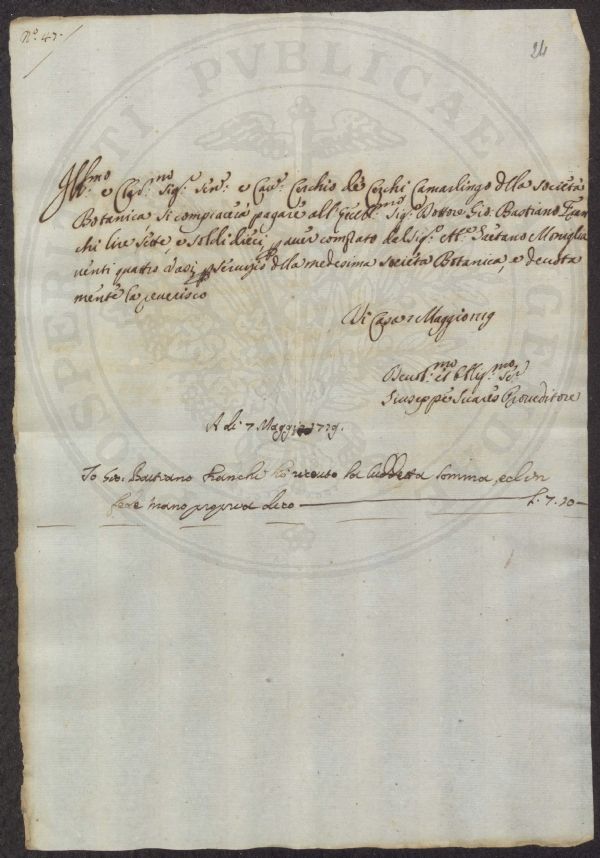 N.º 47.
24
Ill.mo e Clar.mo Sig.r Sen.r e Cav.r Cerchio de Cerchi Camarlingo della Società
Botanica si compiacerà pagare all Eccel.mo Sig.r Dottore Gio: Bastiano Fran
chi lire sette, e soldi dieci, p aver comprato dal Sig.r Ab.e Gaetano Moniglia
venti quattro vasi p servizio della medesima Società Botanica, e devota
mente la reverisco
Di Casa 7 Maggio 1719
Devot.mo et Obblig.mo Se.
Giuseppe Suares Proveditore
A di 7 Maggio 1719.
Io Gio: Bastiano Franchi hò riceuto la suddetta somma, ed in
fede mano propria dico L. 7.10
PROSPERITATI PVBLICAE AVGENDAE